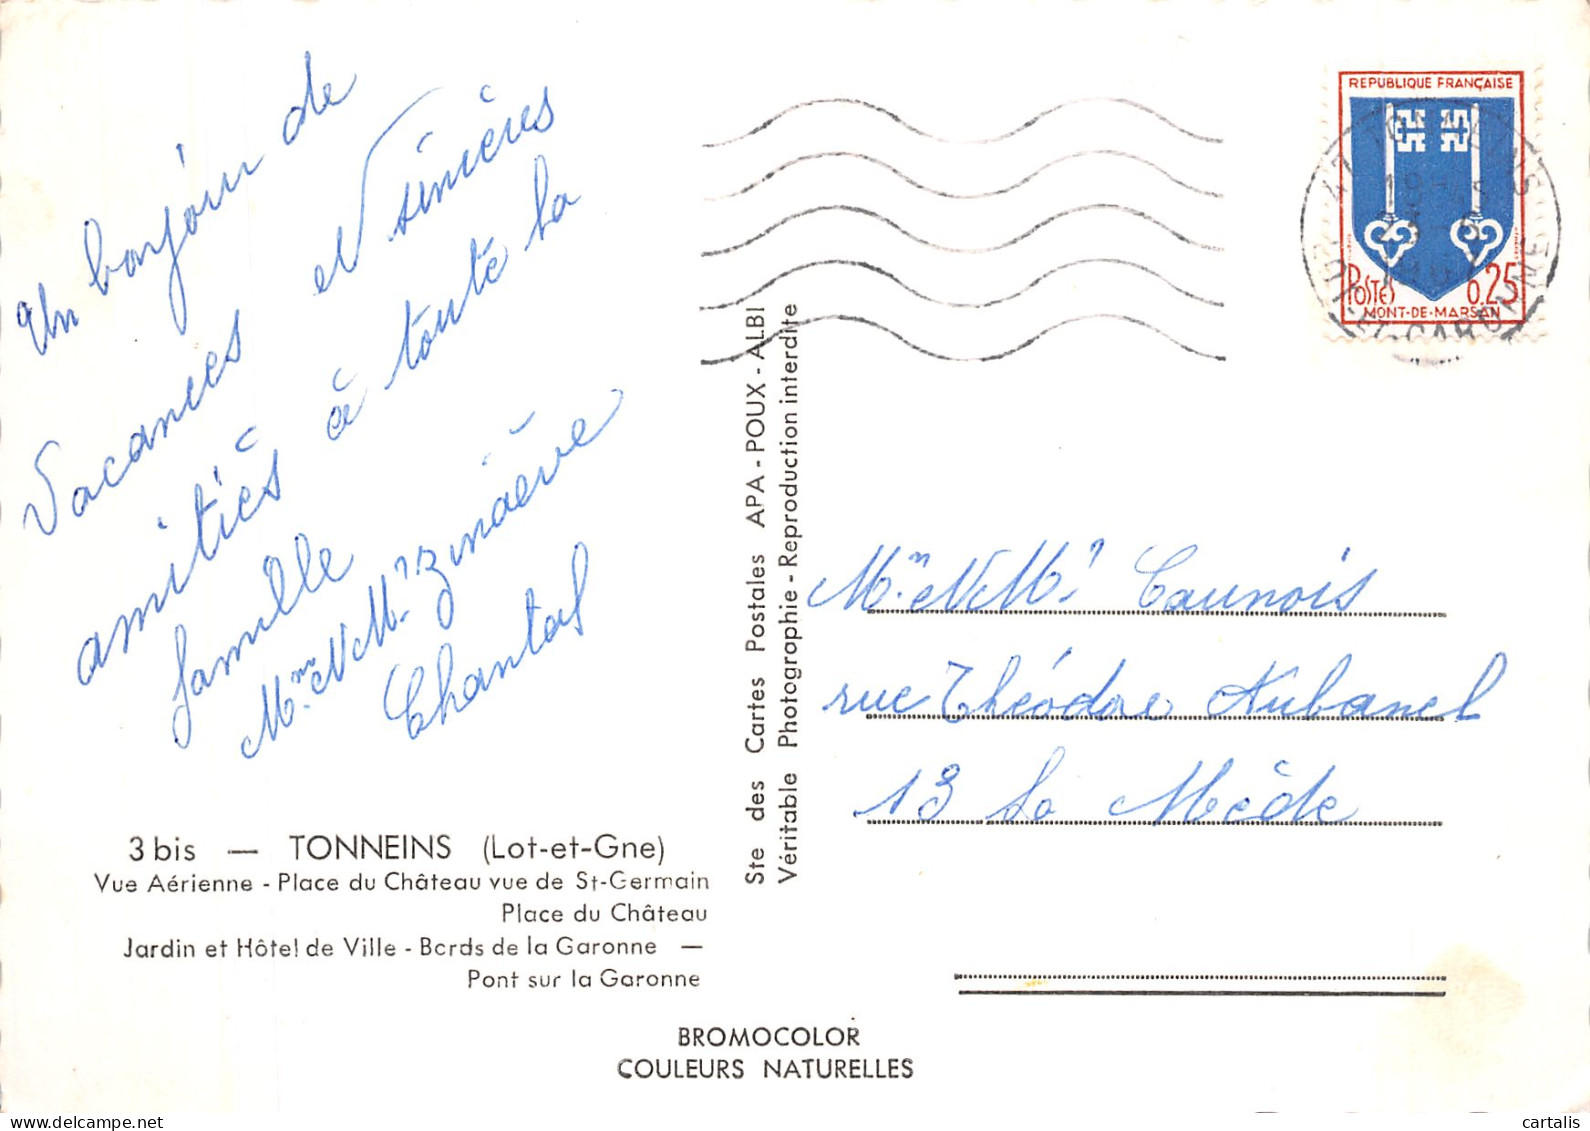 Un bonjour de
vacances et sincères
amitiés à toute la
famille
Mme et Mr
Chantal
3 bis — TONNEINS (Lot-et-Gne)
Vue Aérienne - Place du Château vue de St-Germain
Place du Château
Jardin et Hôtel de Ville - Bords de la Garonne —
Pont sur la Garonne
BROMOCOLOR
COULEURS NATURELLES
Ste des Cartes Postales APA - POUX - ALBI
Véritable Photographie - Reproduction interdite
REPUBLIQUE FRANÇAISE
POSTES 0,25
MONT-DE-MARSAN
47 TONNEINS
LOT-ET-GARONNE
Mme et Mr Caunois
rue Théodore Aubanel
13 La Mède
cartalis
delcampe.net